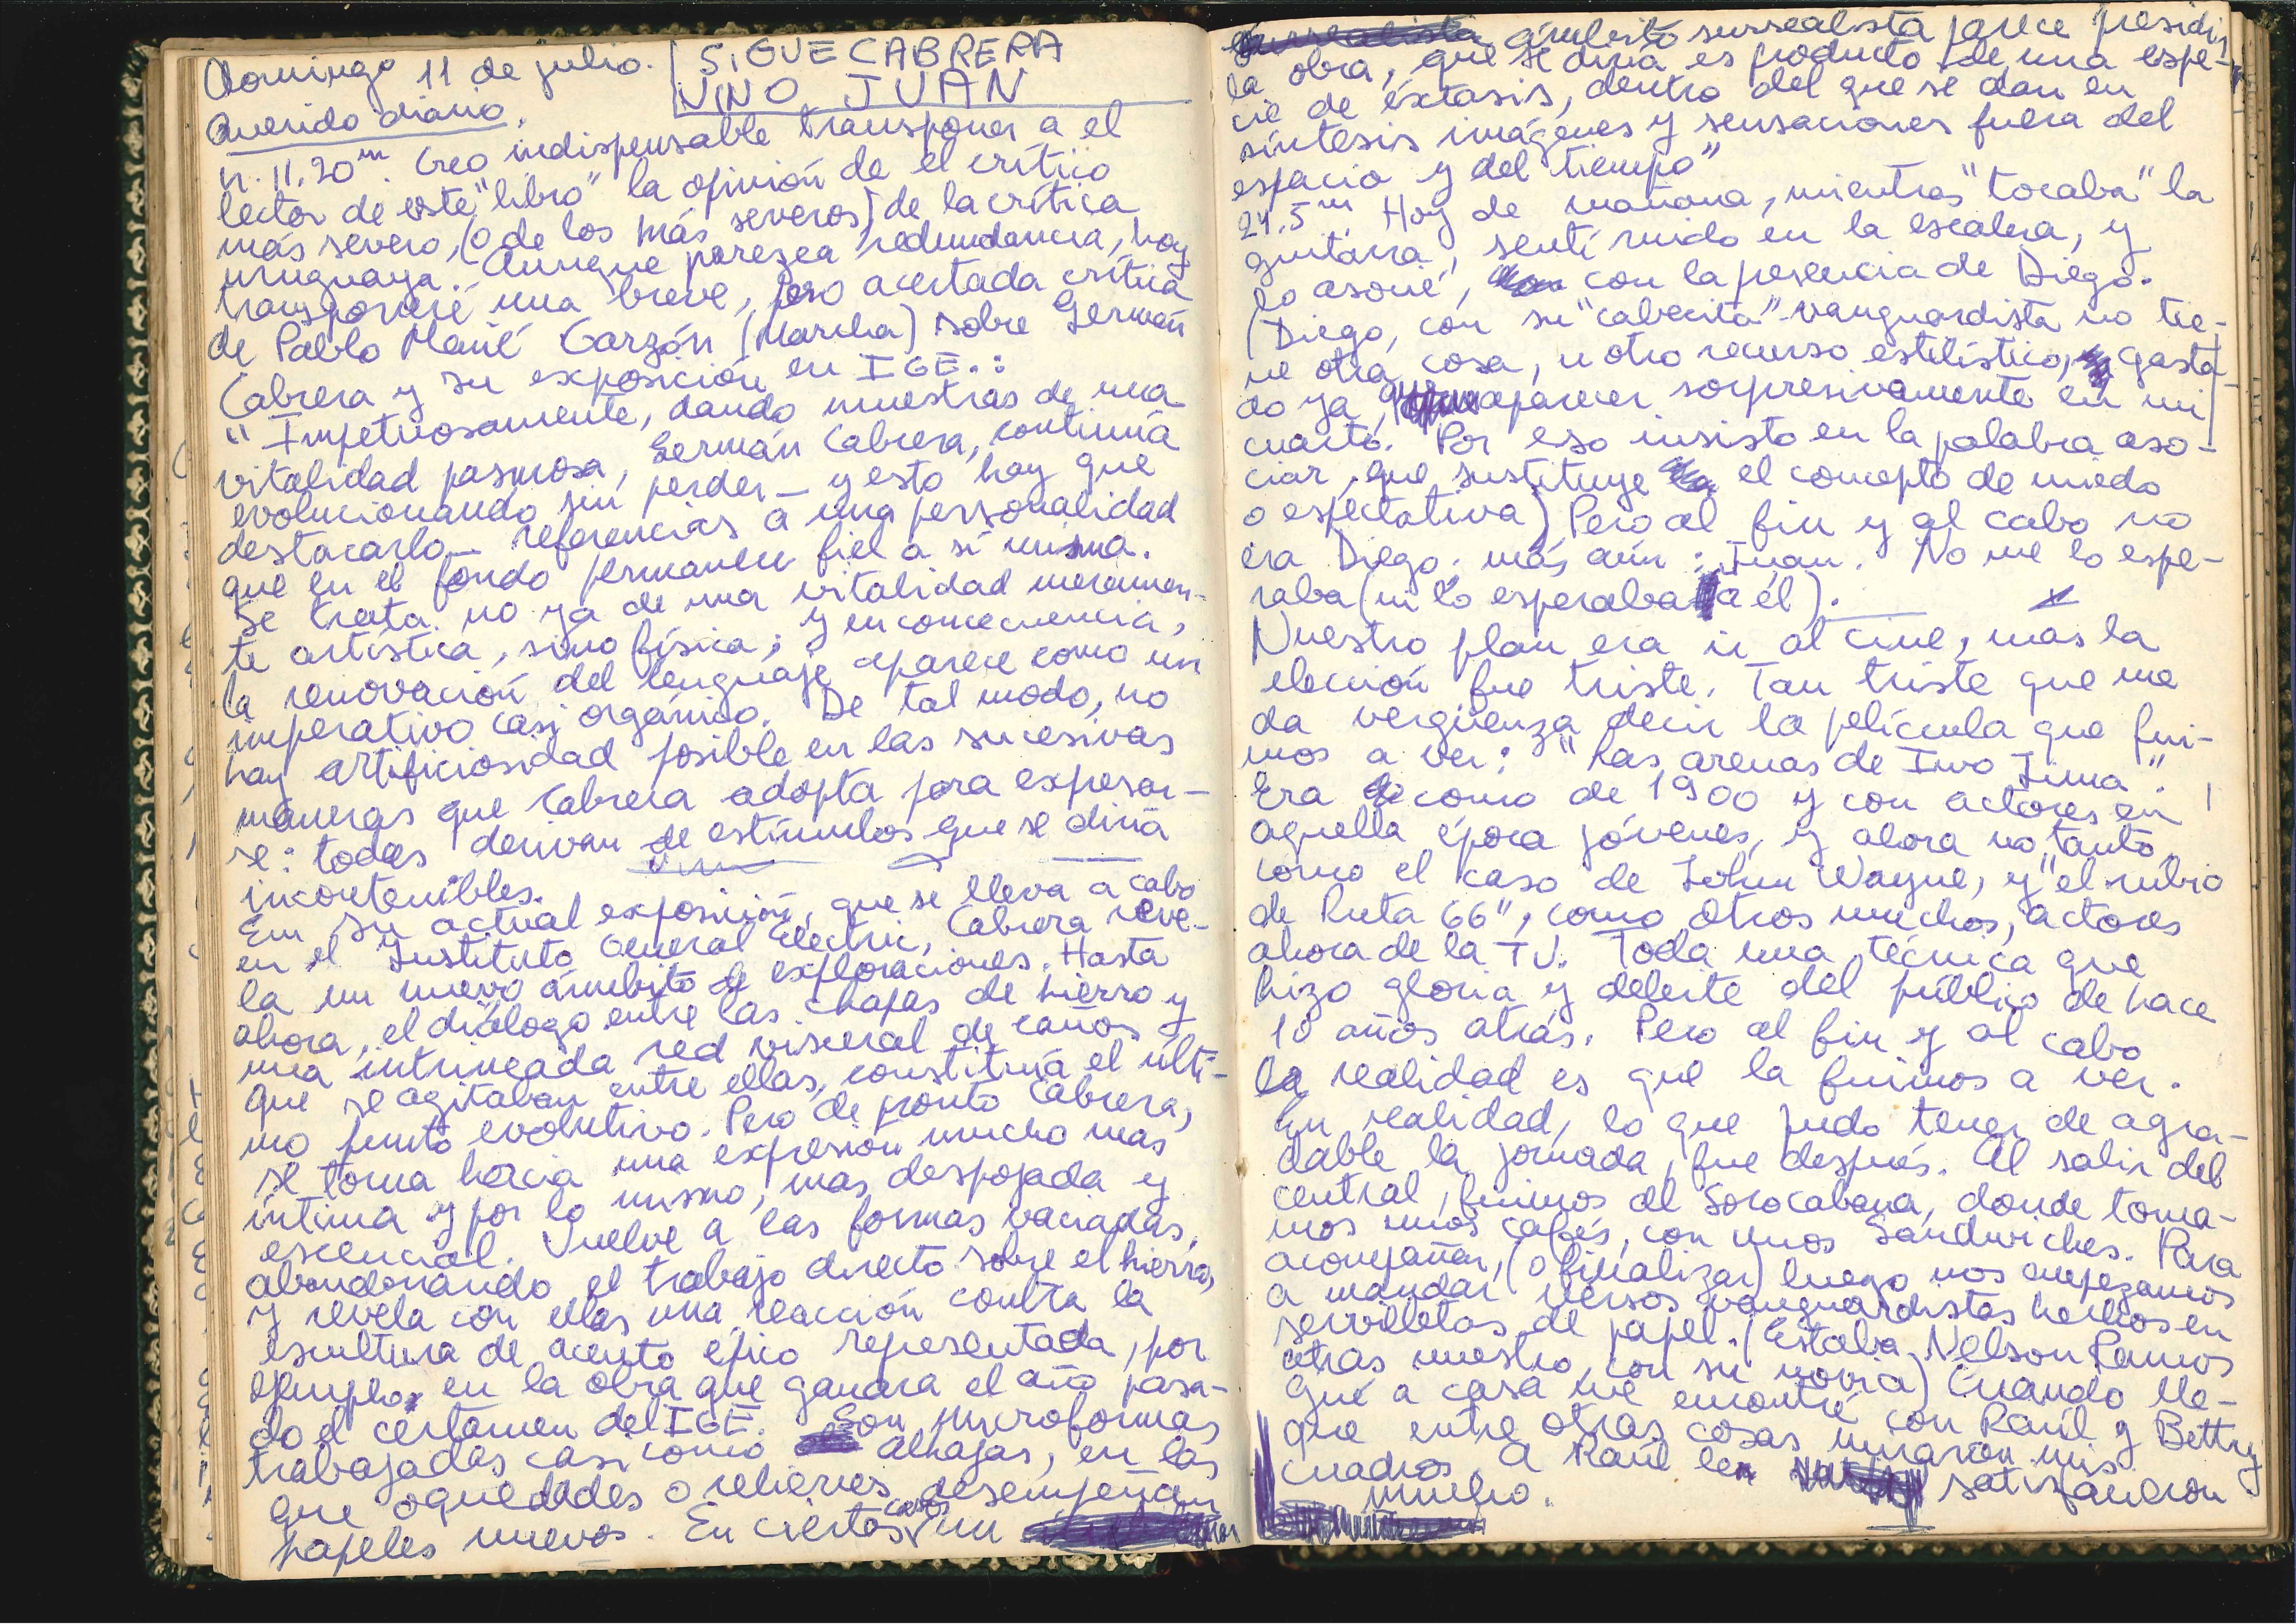 Domingo 11 de julio. | SIGUE CABRERA
VINO JUAN
Querido diario,
H. 11.20m. Creo indispensable transponer a el
lector de este "libro" la opinión de el crítico
más severo, (o de los más severos) de la crítica
uruguaya. Aunque parezca redundancia, hoy
transponeré una breve, pero acertada crítica
de Pablo Mañé Garzón (Marcha) sobre Germán
Cabrera y su exposición en IGE.:
"Impetuosamente, dando muestras de una
vitalidad pasmosa, Germán Cabrera, continúa
evolucionando sin perder — y esto hay que
destacarlo — referencias a una personalidad
que en el fondo permanece fiel a sí misma.
Se trata no ya de una vitalidad meramen-
te artística, sino física; y en consecuencia,
la renovación del lenguaje aparece como un
imperativo casi orgánico. De tal modo, no
hay artificiosidad posible en las sucesivas
maneras que Cabrera adopta para expresar-
se: todas derivan de estímulos que se diría
incontenibles.
Em su actual exposición, que se lleva a cabo
en el Instituto General Electric, Cabrera reve-
la un nuevo ámbito de exploraciones. Hasta
ahora, el diálogo entre las chapas de hierro y
una intrincada red visceral de caños
que se agitaban entre ellas, constituía el últi-
mo punto evolutivo. Pero de pronto Cabrera,
se torna hacia una expresión mucho mas
íntima y por lo mismo, mas despojada y
escencial. Vuelve a las formas vaciadas,
abandonando el trabajo directo sobre el hierro,
y revela con ellas una reacción contra la
escultura de acento épico representada, por
ejemplo, en la obra que ganara el año pasa-
do el certamen del IGE. Son microformas
trabajadas casi como alhajas, en las
que oquedades o relieves desempeñan
papeles nuevos. En ciertos casos un
ámbito surrealista parece presidir
la obra, que se diría es producto de una espe-
cie de éxtasis, dentro del que se dan en
síntesis imágenes y sensaciones fuera del
espacio y del tiempo"
21.5m Hoy de mañana, mientras "tocaba" la
guitarra, sentí ruido en la escalera, y
lo asocié, con la presencia de Diego.
(Diego, con su "cabecita" vanguardista no tie-
ne otra cosa, u otro recurso estilístico, gasta-
do ya, que aparecer sorpresivamente en mi
cuarto. Por eso insisto en la palabra aso-
ciar, que sustituye el concepto de miedo
o espectativa) Pero al fin y al cabo no
era Diego. más aún: Juan. No me lo espe-
raba (ni lo esperaba a él).
Nuestro plan era ir al cine, mas la
elección fue triste. Tan triste que me
da vergüenza decir la película que fui-
mos a ver: "Las arenas de Iwo Jima".
Era como de 1900 y con actores en
aquella época jóvenes, y ahora no tanto,
como el caso de John Wayne, y "el rubio
de Ruta 66", como otros muchos, actores
ahora de la TV. Toda una técnica que
hizo gloria y deleite del público de hace
10 años atrás. Pero al fin y al cabo
la realidad es que la fuimos a ver.
En realidad, lo que pudo tener de agra-
dable la jornada, fue después. Al salir del
central, fuimos al Sorocabana, donde toma-
mos unos cafés, con unos Sandwiches. Para
acompañar, (o finalizar) luego nos empezamos
a mandar versos vanguardistas hechos en
servilletas de papel. (Estaba Nelson Ramos
atrás nuestro, con su novia) Cuando lle-
gué a casa me encontré con Raúl y Bettny
que entre otras cosas miraron mis
cuadros. A Raúl le satisfacieron
mucho.